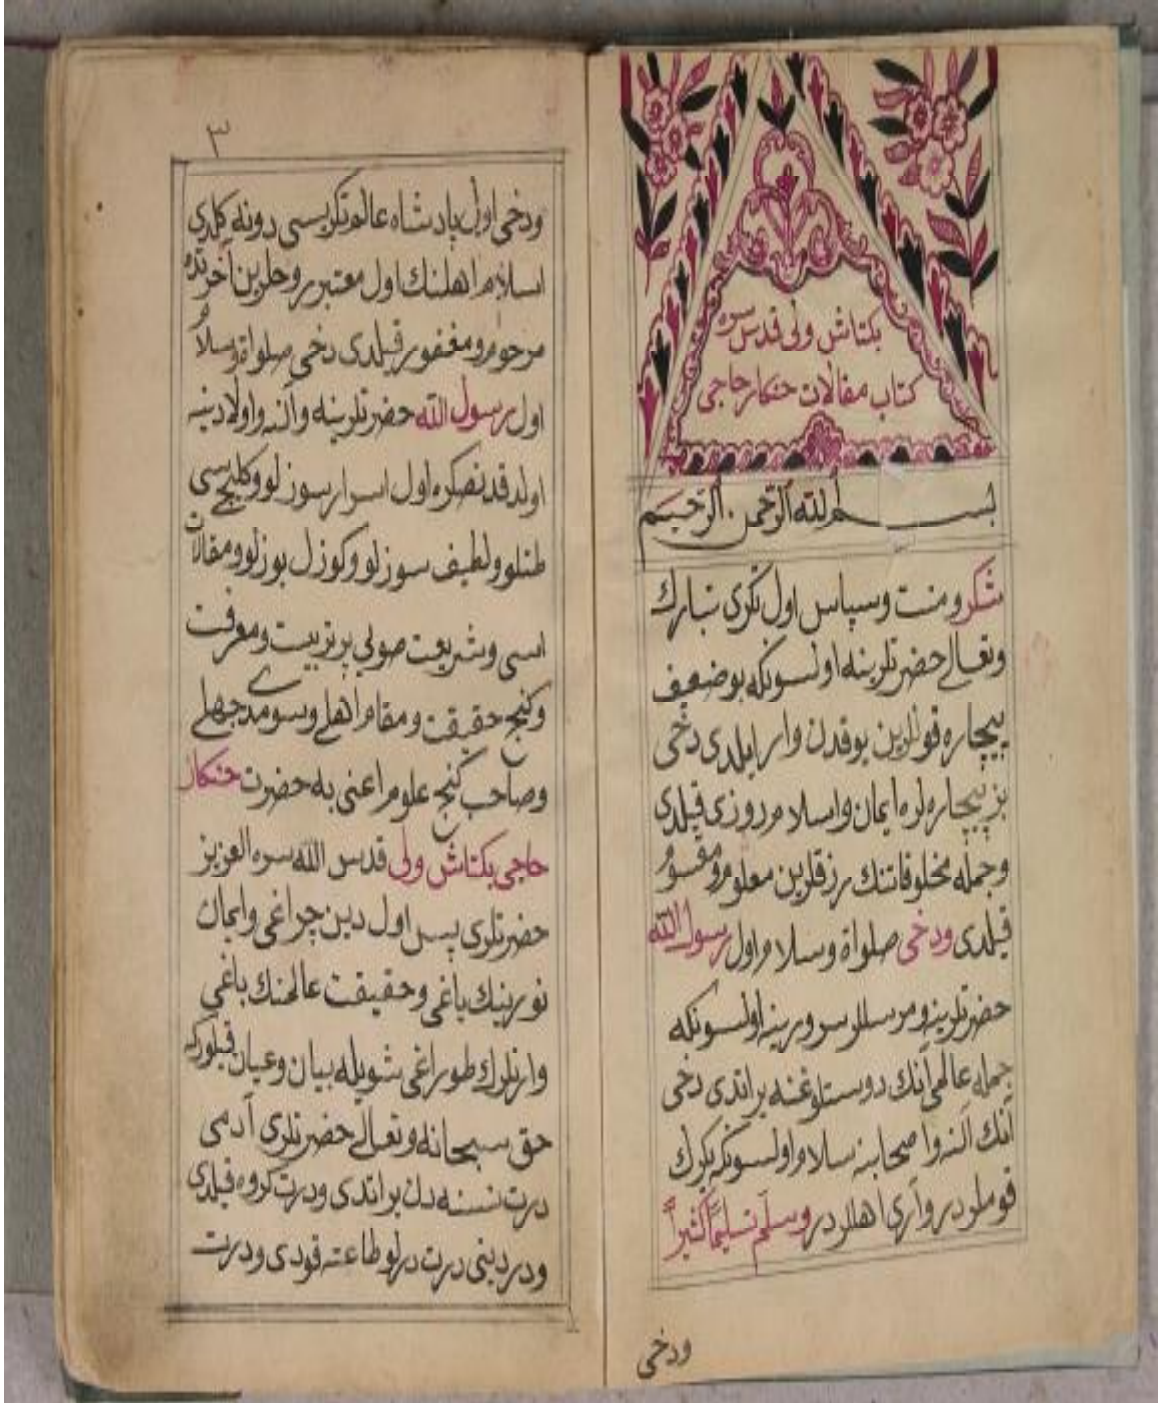 بكتاش ولى قدس سره
كتاب مقالات خنكار حاجى
بسم الله الرحمن الرحيم
شكر و منت و سپاس اول تكرى تبارك
وتعالى حضرتلرينه اولسونكه بو ضعيف
بيچاره قوللرين يوقدن وار ايلدى دخى
بز بيچاره لره ايمان واسلام روزى قيلدى
وجمله مخلوقاتنك رزقلرين معلوم ومقسوم
قيلدى ودخى صلواة وسلام اول رسول الله
حضرتلرينه ومرسللر سرورينه اولسونكه
جمله عالمى آنك دوستلوغنه يراتدى دخى
آنك آلنه واصحابنه سلام اولسونكه يكرك
قوملردر وآرى اهللردر وسلم تسليمًا كثيرًا
ودخى
٣
ودخى اول پادشاه عالم تكريسى دونه كلدى
اسلام اهلنك اول معتبر روحلرين آخرتده
مرحوم ومغفور قيلدى دخى صلواة وسلام
اول رسول الله حضرتلرينه وآلنه واولادينه
اولدقدنصكره اول اسرار سوزلو وكليجسى
طتلو ولطيف سوزلو وكوزل يوزلو ومقالات
اسى وشريعت صولى پر تربيت ومعرفت
وكنج حقيقت ومقام اهلى
وصاحب كنج علوم اعنى به حضرت خنكار
حاجى بكتاش ولى قدس الله سره العزيز
حضرتلرى پس اول دين چراغى وايمان
نورينك ياغى وحقيقت عالمنك باغى
وارنلرك طوراغى شويله بيان وعيان قيلوركه
حق سبحانه وتعالى حضرتلرى آدمى
درت نسنه دن يراتدى ودرت كروه قيلدى
ودرديني درت درلو طاعته قودى ودرت